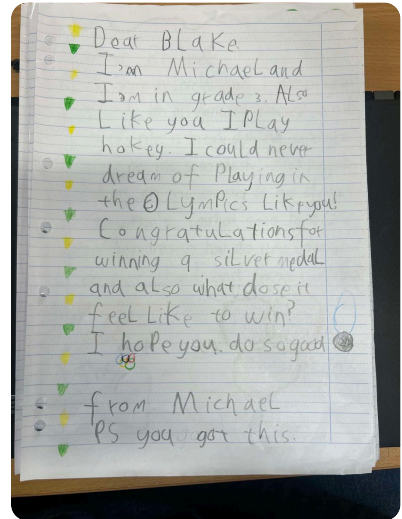 Dear Blake
I am Michael and
I am in grade 3. Also
Like you I Play
hokey. I could never
dream of Playing in
the OLymPics Like you!
CongratuLations for
winning a silver medaL
and also what dose it
feel Like to win?
I hope you do so good
from Michael
PS you got this.